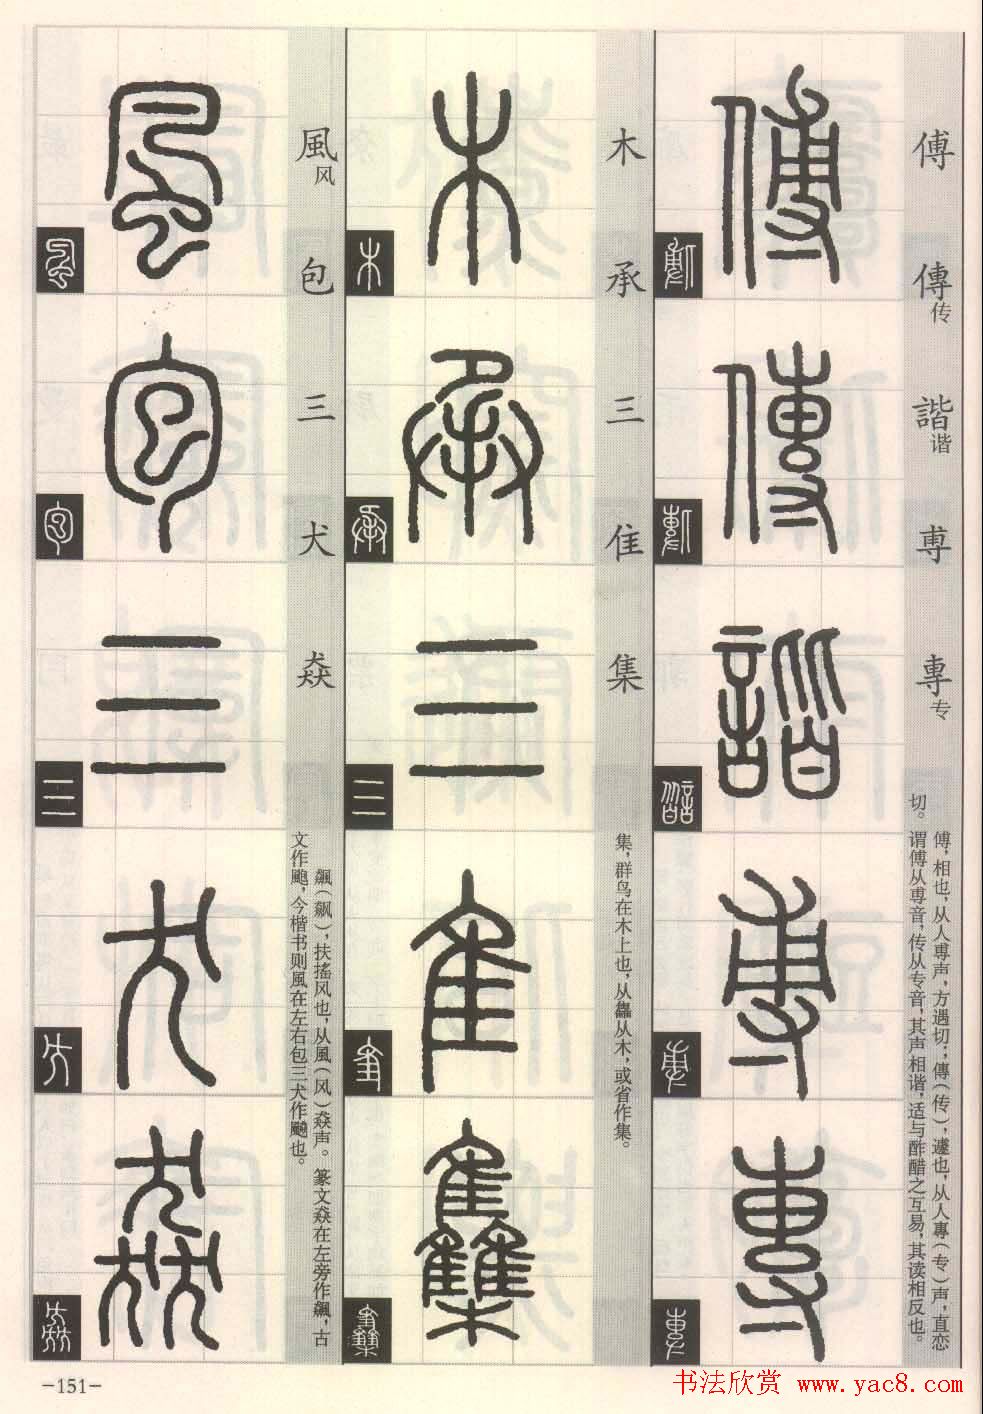 傅
傳传
諧谐
尃
專专
傅，相也，从人尃声，方遇切；傳（传），遽也，从人專（专）声，直恋
切。谓傅从尃音，传从专音，其声相谐，适与酢醋之互易，其读相反也。
木
承
三
隹
集
集，群鸟在木上也，从雥从木，或省作集。
風风
包
三
犬
猋
飆（飙），扶摇风也，从風（风）猋声。篆文猋在左旁作飆，古
文作颮，今楷书则風在左右包三犬作飇也。
-151-
书法欣赏 www.yac8.com